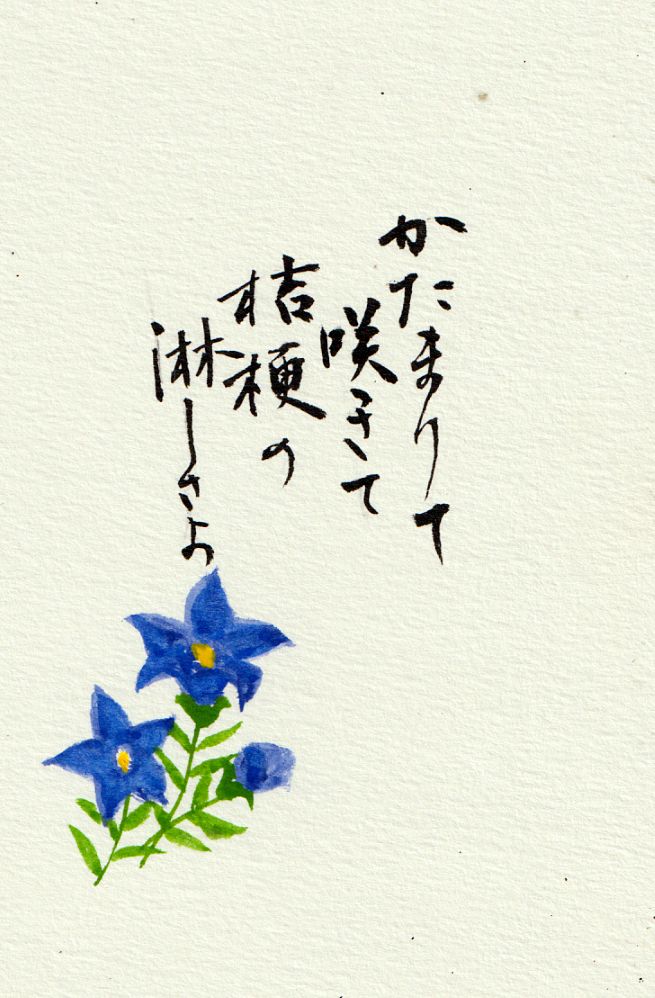 かたまりて
咲きて
桔梗の
淋しさよ